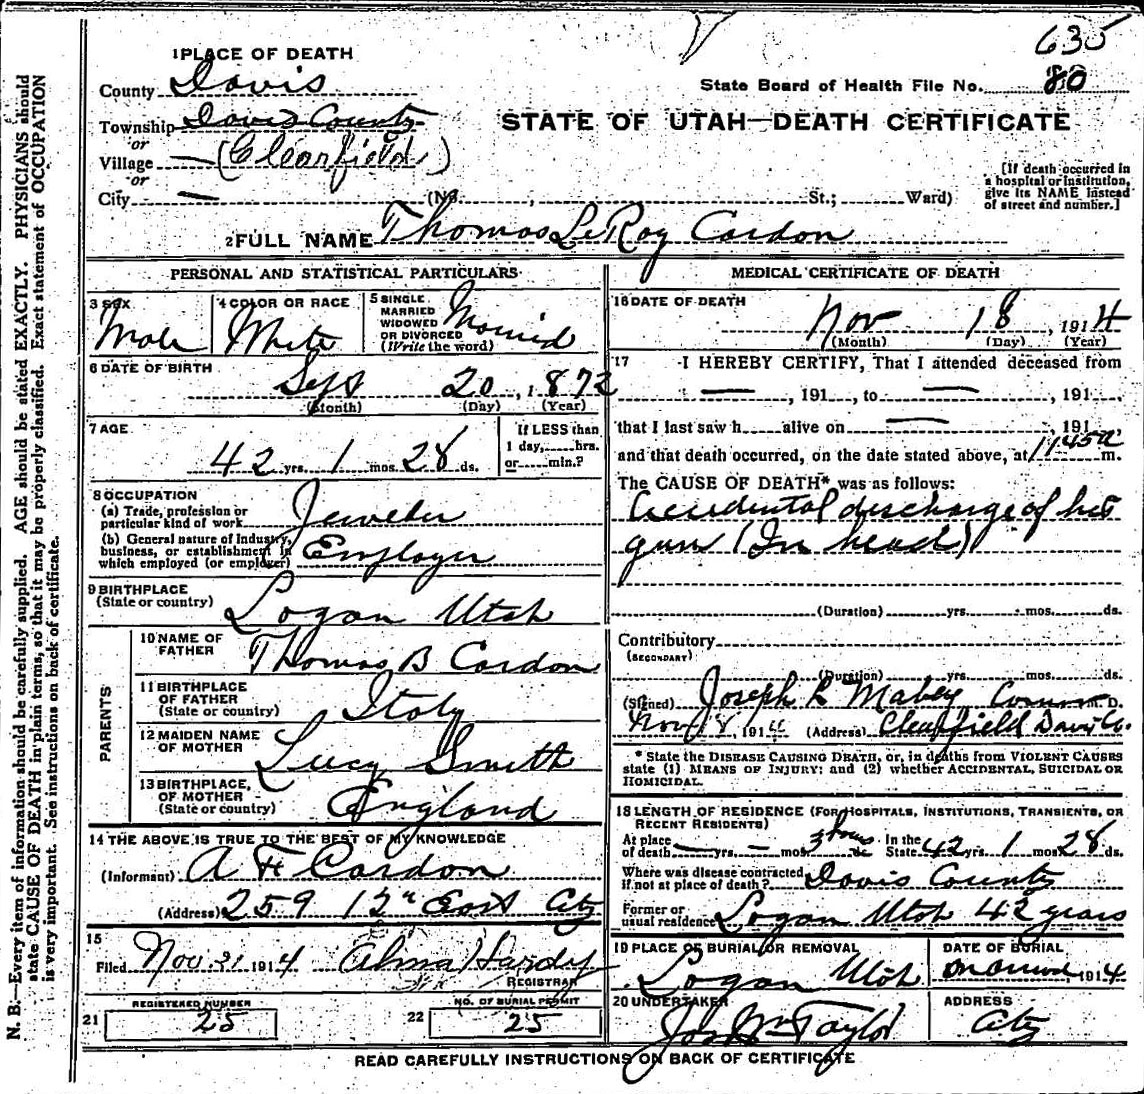 635
1 PLACE OF DEATH
County Davis
State Board of Health File No. 80
Township Davis County
or
STATE OF UTAH—DEATH CERTIFICATE
Village — (Clearfield)
or
City — (No. , St.; Ward)
[If death occurred in
a hospital or institution,
give its NAME instead
of street and number.]
2 FULL NAME Thomas LeRoy Cardon
PERSONAL AND STATISTICAL PARTICULARS
3 SEX
Male
4 COLOR OR RACE
White
5 SINGLE
MARRIED
WIDOWED
OR DIVORCED
(Write the word)
Married
6 DATE OF BIRTH
Sept 20, 1872
(Month) (Day) (Year)
7 AGE
42 yrs. 1 mos. 28 ds.
If LESS than
1 day, hrs.
or min.?
8 OCCUPATION
(a) Trade, profession or
particular kind of work Jeweler
(b) General nature of Industry,
business, or establishment in
which employed (or employer) Employer
9 BIRTHPLACE
(State or country) Logan Utah
PARENTS
10 NAME OF
FATHER Thomas B Cardon
11 BIRTHPLACE
OF FATHER
(State or country) Italy
12 MAIDEN NAME
OF MOTHER Lucy Smith
13 BIRTHPLACE,
OF MOTHER
(State or country) England
14 THE ABOVE IS TRUE TO THE BEST OF MY KNOWLEDGE
(Informant) A F Cardon
(Address) 259 12" East City
15
Filed Nov. 21 1914 Alma Hardy
REGISTRAR
21 REGISTERED NUMBER
25
22 NO. OF BURIAL PERMIT
25
MEDICAL CERTIFICATE OF DEATH
16 DATE OF DEATH
Nov 18, 1914
(Month) (Day) (Year)
17 I HEREBY CERTIFY, That I attended deceased from
— , 191 , to — , 191 ,
that I last saw h alive on — , 191
and that death occurred, on the date stated above, at 11 45 a m.
The CAUSE OF DEATH* was as follows:
Accidental discharge of his
gun (In head)
(Duration) yrs. mos. ds.
Contributory
(SECONDARY)
(Duration) yrs. mos. ds.
(Signed) Joseph L Mabey M. D.
Nov 18, 1914 (Address) Clearfield Davis Co.
* State the DISEASE CAUSING DEATH, or, in deaths from VIOLENT CAUSES
state (1) MEANS OF INJURY; and (2) whether ACCIDENTAL, SUICIDAL OR
HOMICIDAL.
18 LENGTH OF RESIDENCE (FOR HOSPITALS, INSTITUTIONS, TRANSIENTS, OR
RECENT RESIDENTS)
At place
of death — yrs. — mos. 3 hours ds. In the
State 42 yrs. 1 mos. 28 ds.
Where was disease contracted
if not at place of death? Davis County
Former or
usual residence Logan Utah 42 years
19 PLACE OF BURIAL OR REMOVAL
Logan Utah
DATE OF BURIAL
, 1914
20 UNDERTAKER
Jos Wm Taylor
ADDRESS
City
READ CAREFULLY INSTRUCTIONS ON BACK OF CERTIFICATE
N. B.—Every item of information should be carefully supplied. AGE should be stated EXACTLY. PHYSICIANS should
state CAUSE OF DEATH in plain terms, so that it may be properly classified. Exact statement of OCCUPATION
is very important. See instructions on back of certificate.